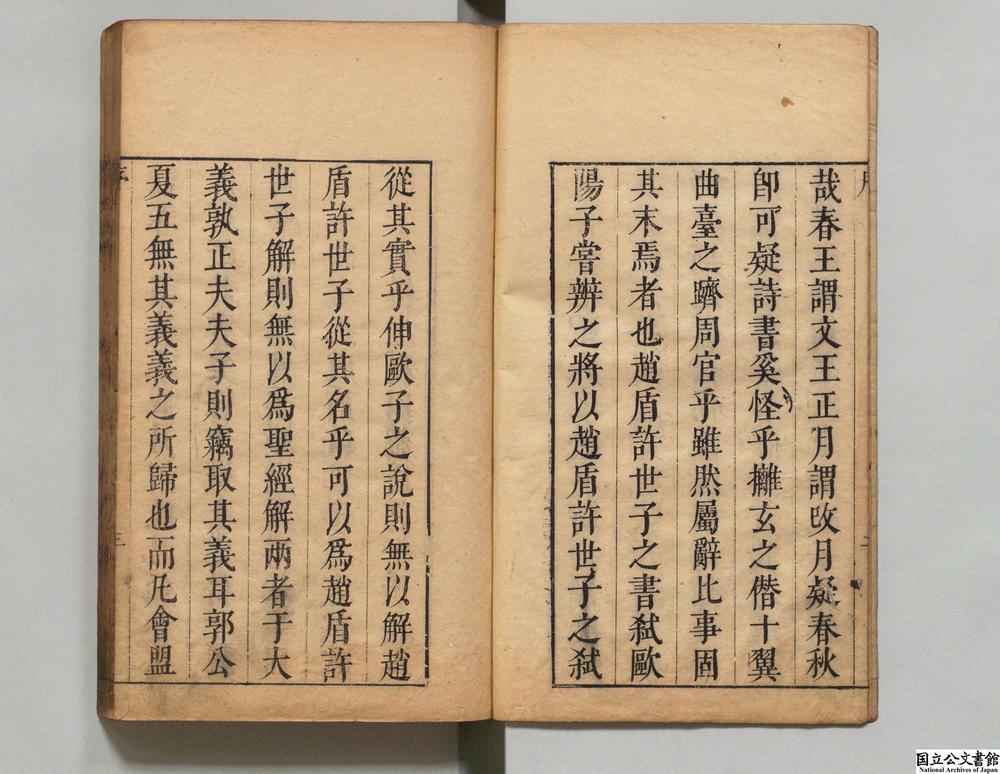 哉春王謂文王正月謂攺月疑春秋
卽可疑詩書奚怪乎擁玄之僣十翼
曲臺之躋周官乎雖然屬辭比事固
其末焉者也趙盾許世子之書弑歐
陽子嘗辨之將以趙盾許世子之弑
從其實乎伸歐子之說則無以解趙
盾許世子從其名乎可以爲趙盾許
世子解則無以爲聖經解兩者于大
義孰正夫夫子則竊取其義耳郭公
夏五無其義義之所歸也而凡會盟
三
国立公文書館
National Archives of Japan